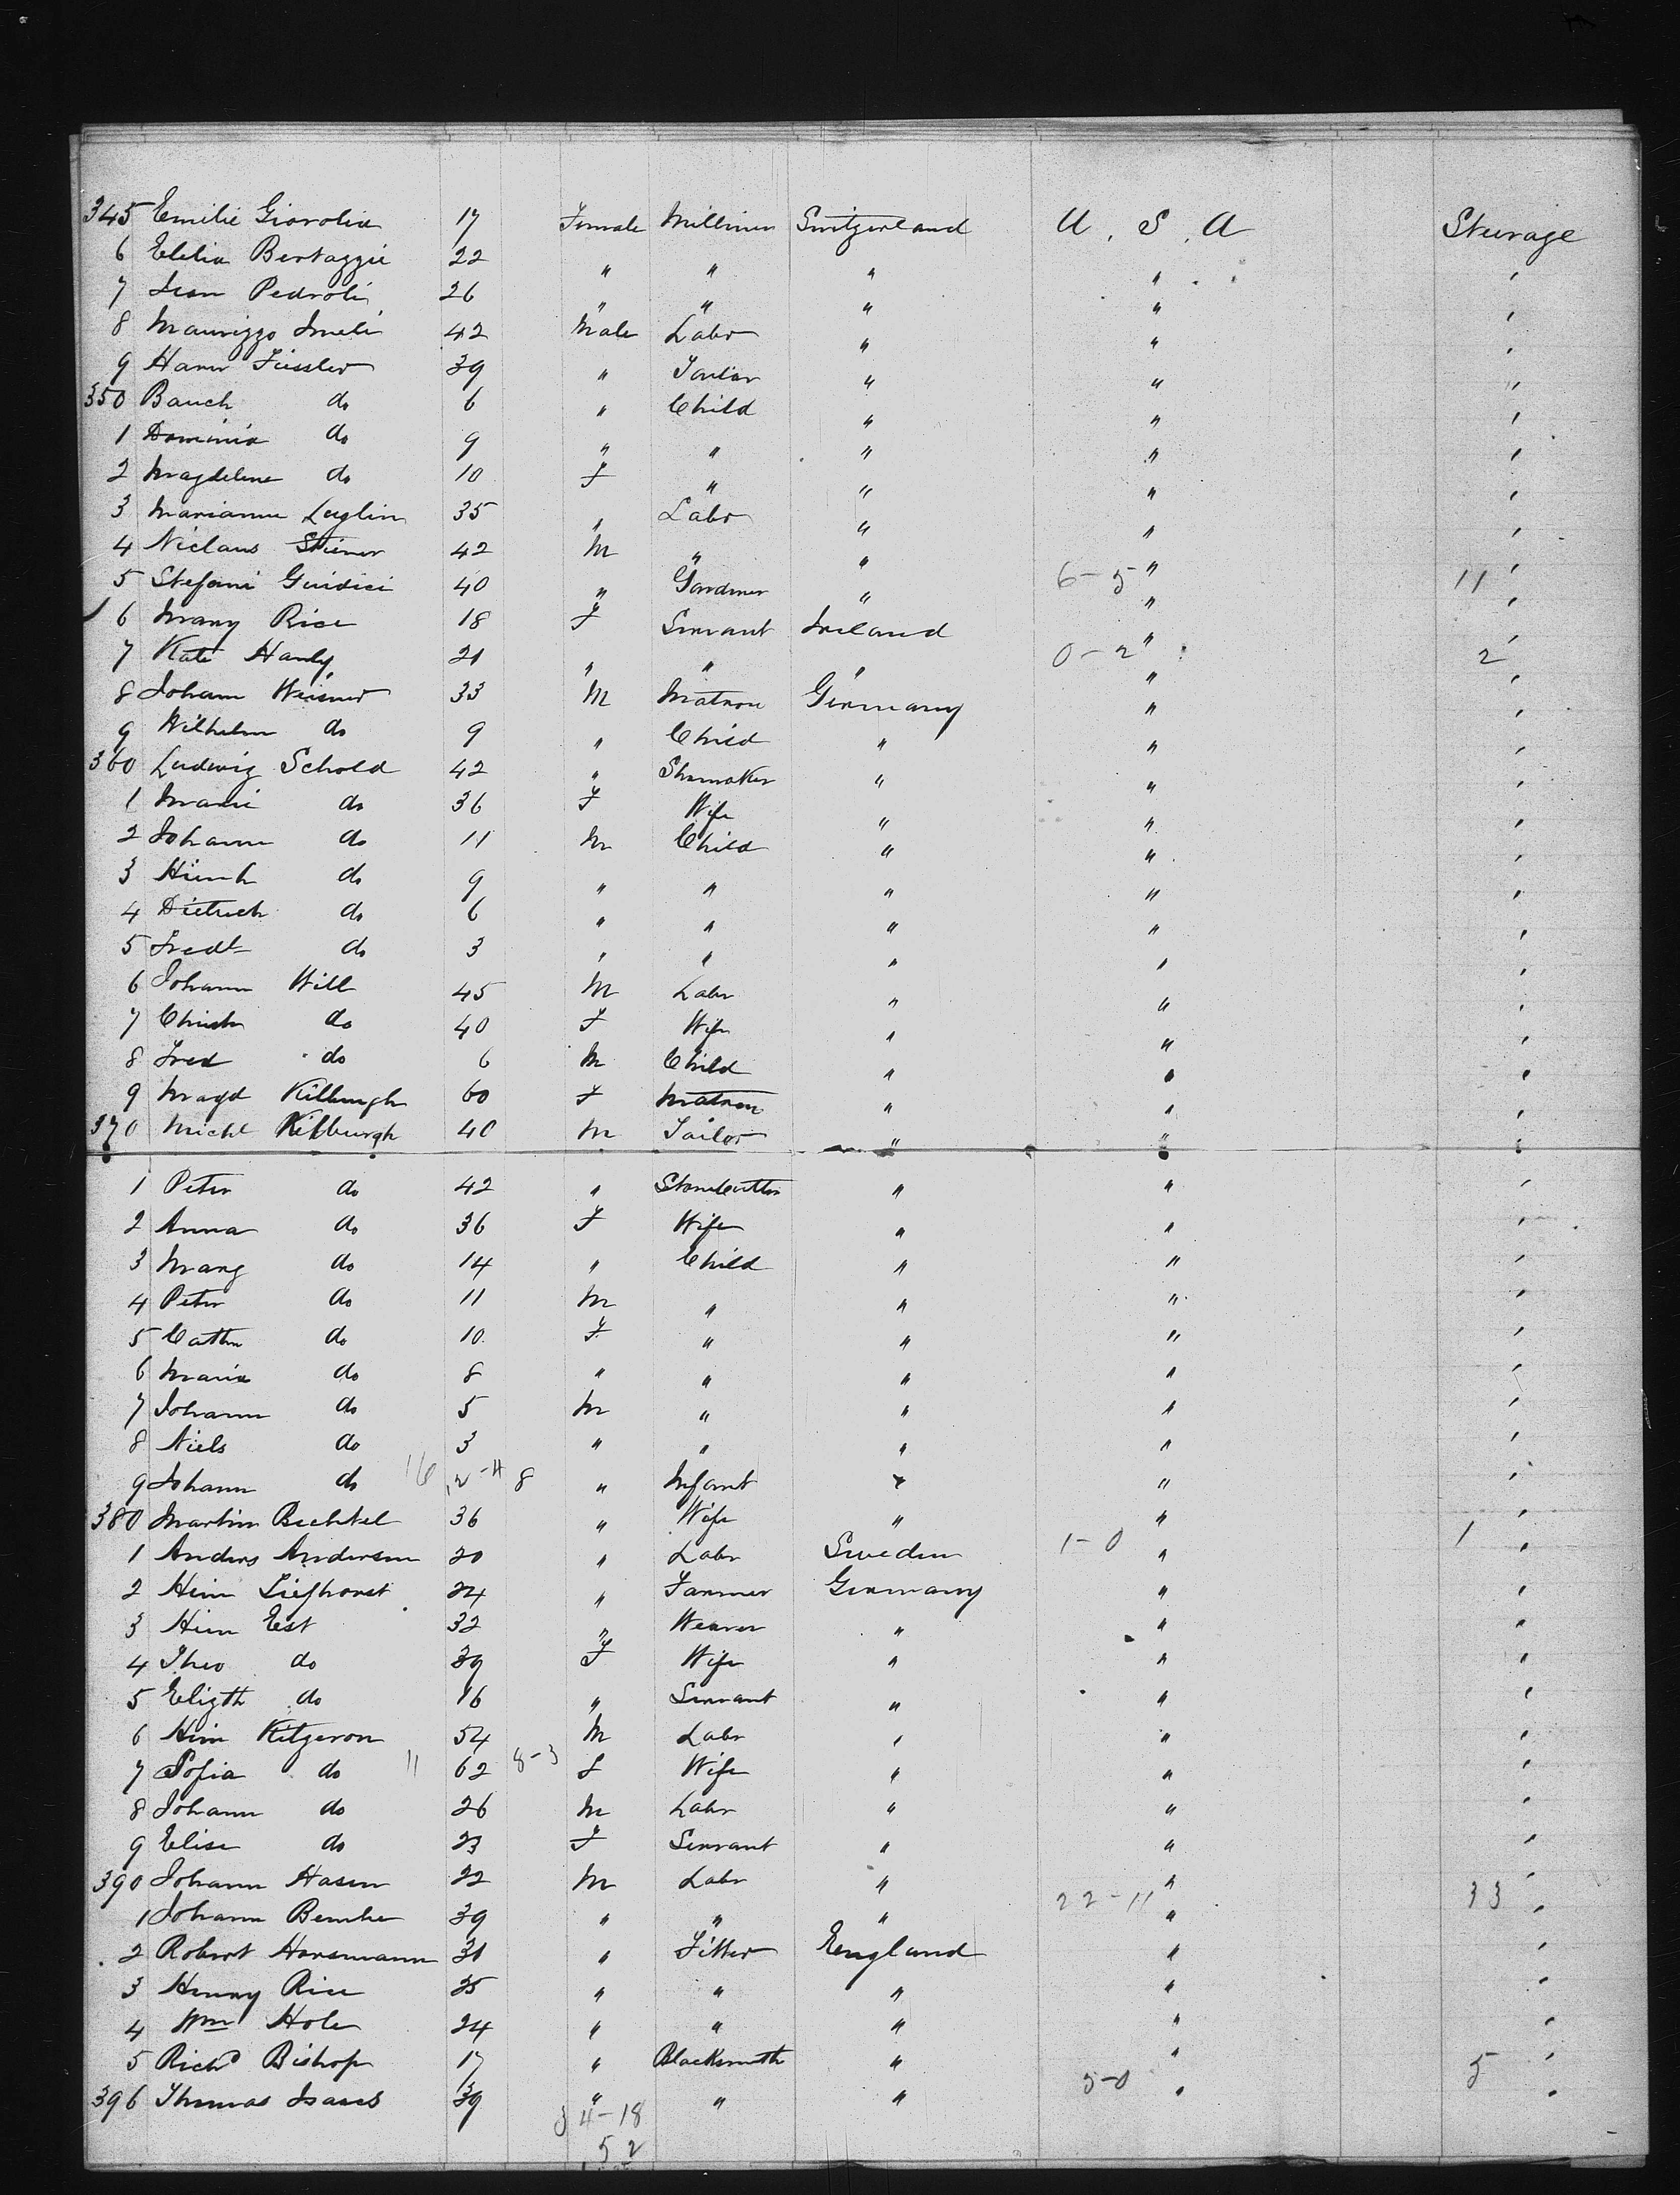 345 Emilie Giovolia 17 Female Milliner Switzerland U. S. A Steerage
6 Elelia Bertaggie 22 " " " " '
7 Jean Pedroli 26 " " " " '
8 Maurizzo Imeli 42 Male Labr " " '
9 Hann Fiessler 39 " Tailor " " "
350 Bauch do 6 " Child " " '
1 Dominia do 9 " " " " '
2 Magdelene do 10 F " " " '
3 Marianne Luglin 35 " Labr " " '
4 Niclaus Stiener 42 M " " " '
5 Stefani Guidici 40 " Gardner " 6-5 " 11 '
6 Mary Rice 18 F Servant Ireland " '
7 Kate Hanly 21 " " " 0-2 " 2 '
8 Johann Weisner 33 M Matron Germany " '
9 Wilhelm do 9 " Child " " '
360 Ludwig Schold 42 " Shomaker " " '
1 Marie do 36 F Wife " " '
2 Johann do 11 M Child " " '
3 Hinrh do 9 " " " " '
4 Dietrich do 6 " " " " '
5 Fredk do 3 " " " " '
6 Johann Will 45 M Labr " " '
7 Christn do 40 F Wife " " '
8 Fred do 6 M Child " " '
9 Magd Killburgh 60 F Matron " " '
370 Michl Killburgh 40 M Tailor " " '
1 Peter do 42 " Stonecutter " " '
2 Anna do 36 F Wife " " '
3 Marg do 14 " Child " " '
4 Peter do 11 M " " " '
5 Cathn do 10 F " " " '
6 Maria do 8 " " " " '
7 Johann do 5 M " " " '
8 Niels do 3 " " " " '
9 Johann do 16 8 " Infant " " '
380 Martin Bechtel 36 " Wife " " '
1 Anders Andersen 20 " Labr Sweden 1-0 " 1 '
2 Hein Liefhorst 24 " Farmer Germany " '
3 Hein Est 32 " Weaver " " '
4 Theo do 39 F Wife " " '
5 Elizth do 16 " Servant " " '
6 Hein Kitzeron 54 M Labr " " '
7 Sofia do 11 62 8-3 F Wife " " '
8 Johann do 26 M Labr " " '
9 Elise do 23 F Servant " " '
390 Johann Hasen 22 M Labr " " '
1 Johann Bemke 39 " " " 22-11 " 33 '
2 Robert Horsmann 31 " Fitter England " '
3 Henry Rice 25 " " " " '
4 Wm Hole 24 " " " " '
5 Richd Bishop 17 " Blacksmith " " '
396 Thomas Isaacs 39 " " " 5-0 " 5 '
34-18
52